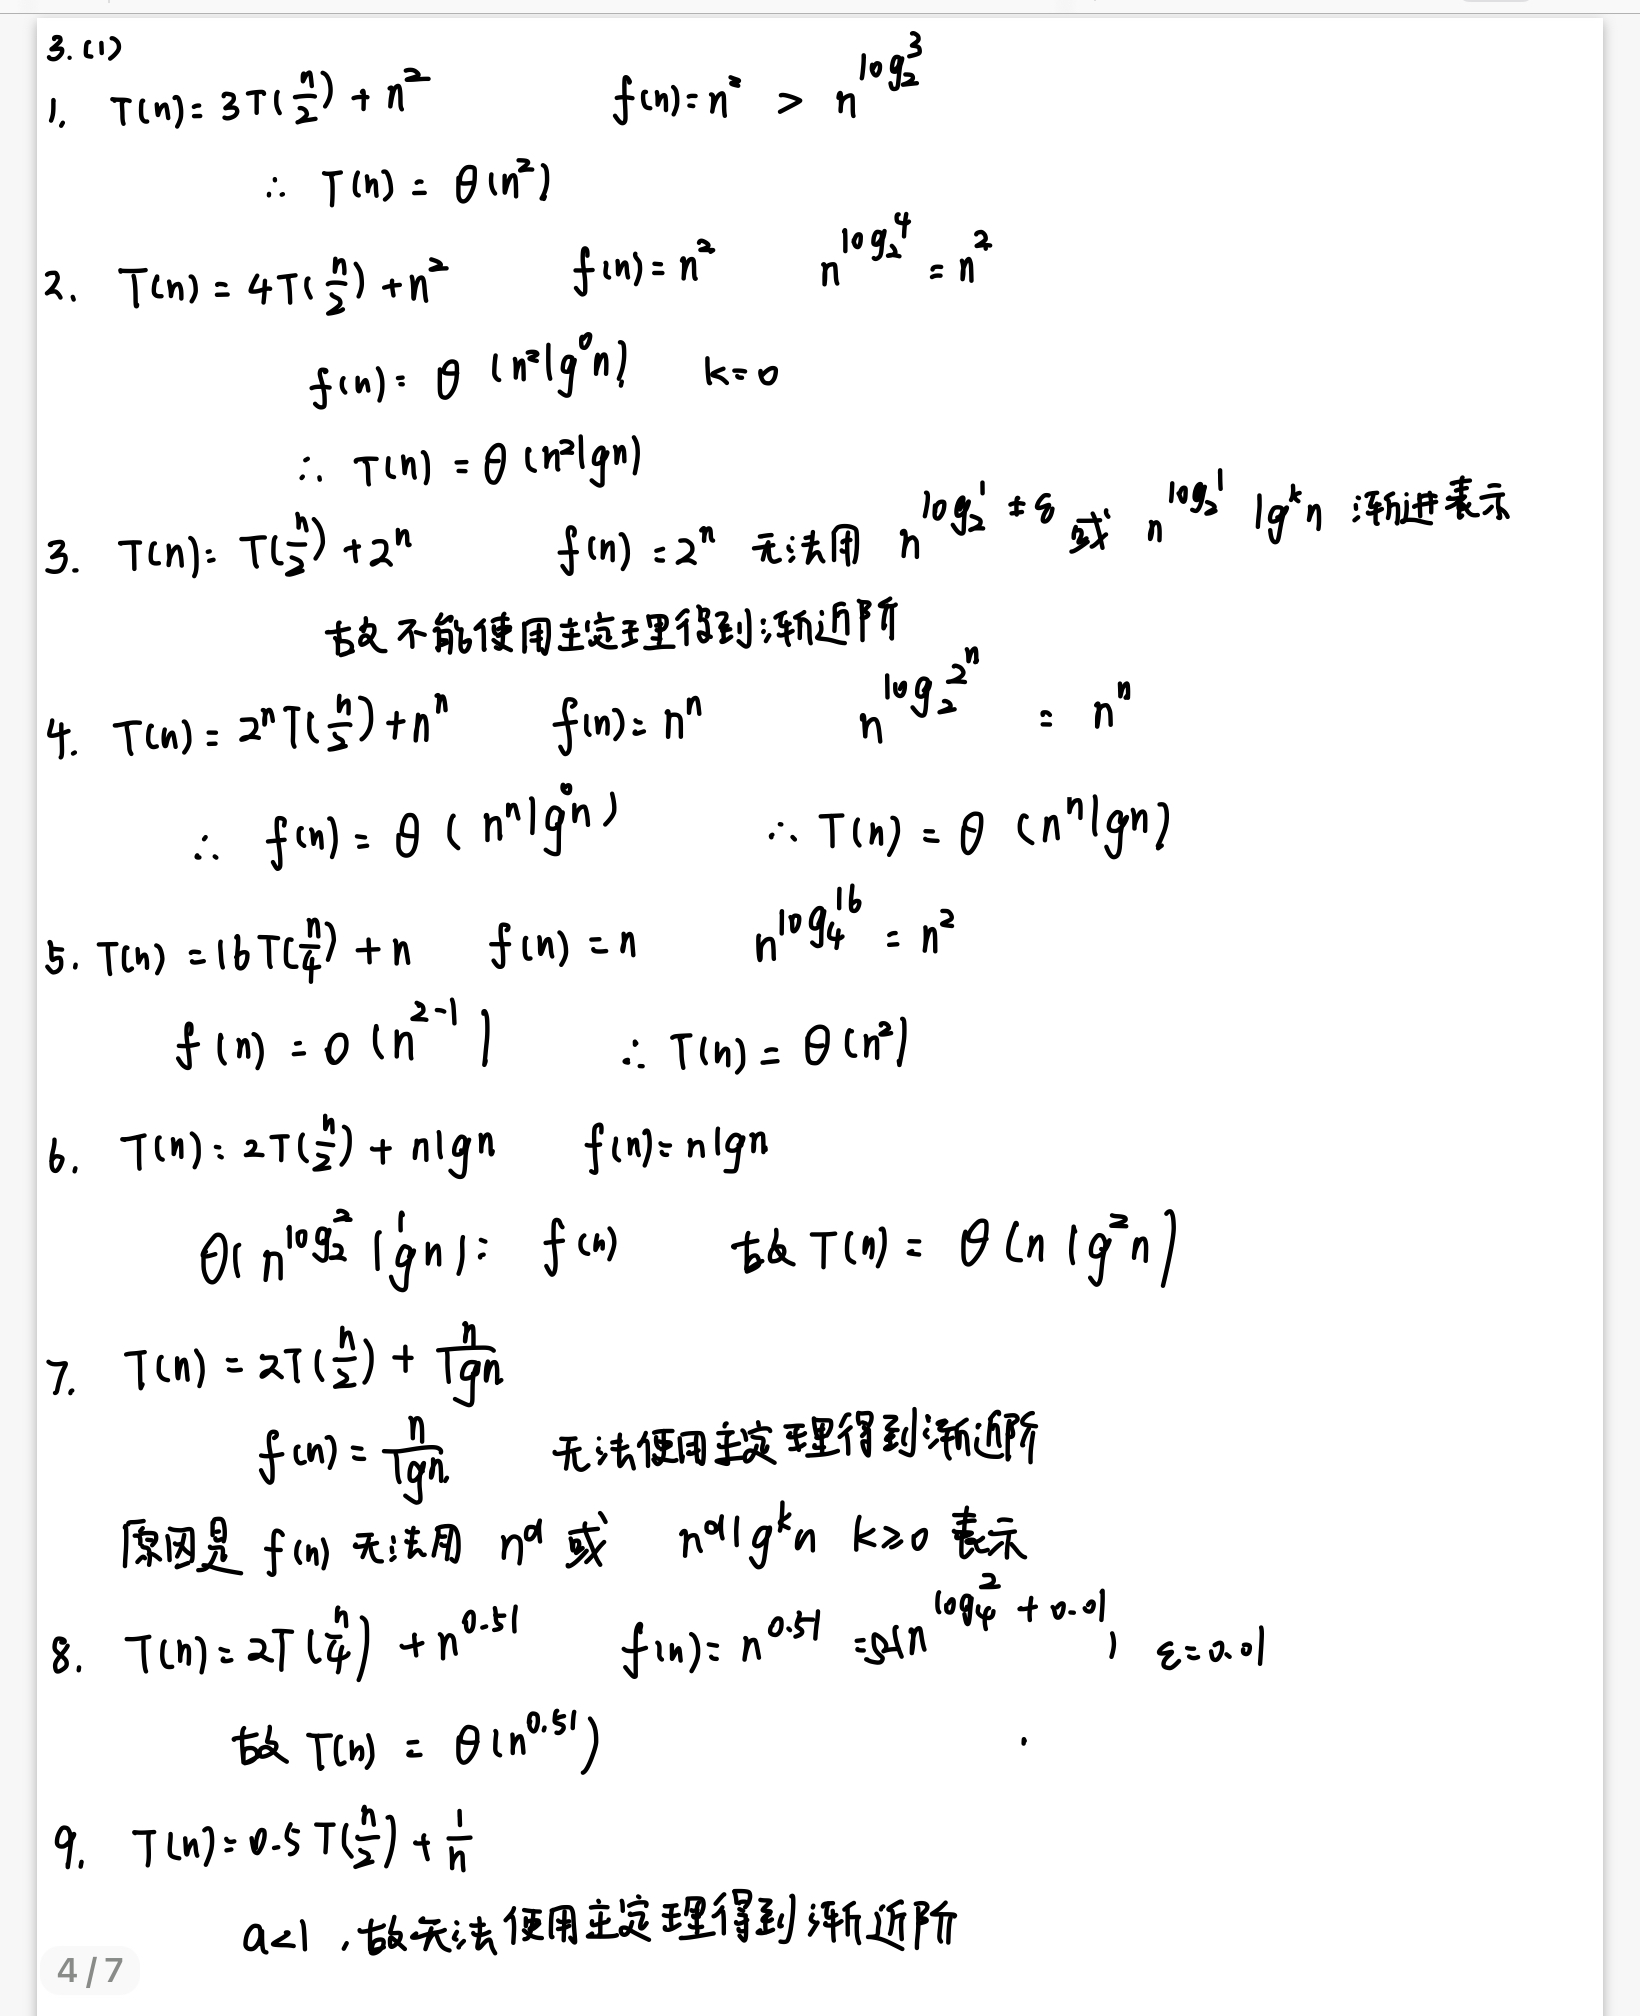 3.(1)
1. T(n)=3T(n/2)+n^2 f(n)=n^2 > n^{log_2^3}
∴ T(n) = θ(n^2)
2. T(n)=4T(n/2)+n^2 f(n)=n^2 n^{log_2^4} = n^2
f(n)= θ (n^2lg^0n) k=0
∴ T(n) =θ(n^2lgn)
3. T(n)= T(n/2)+2^n f(n)=2^n 无法用 n^{log_2^1 ± ε} 或 n^{log_2^1} lg^kn 渐进表示
故不能使用主定理得到渐近阶
4. T(n)= 2^nT(n/2)+n^n f(n)=n^n n^{log_2^{2^n}} = n^n
∴ f(n)= θ ( n^nlg^0n ) ∴ T(n) = θ (n^nlgn)
5. T(n)=16T(n/4)+n f(n)=n n^{log_4^{16}} = n^2
f(n) = O(n^{2-1}) ∴ T(n)= θ(n^2)
6. T(n)=2T(n/2)+ nlgn f(n)=nlgn
θ( n^{log_2^2} lg^1n)= f(n) 故 T(n) = θ(n lg^2n)
7. T(n) = 2T(n/2) + n/lgn
f(n) = n/lgn 无法使用主定理得到渐近阶
原因是 f(n) 无法用 n^α 或 n^αlg^kn k≥0 表示
8. T(n)=2T(n/4) + n^{0.51} f(n)= n^{0.51} =Ω(n^{log_4^2 + 0.01}) ε=0.01
故 T(n) = θ(n^{0.51})
9. T(n)=0.5T(n/2)+ 1/n
a<1 , 故无法使用主定理得到渐近阶
4/7